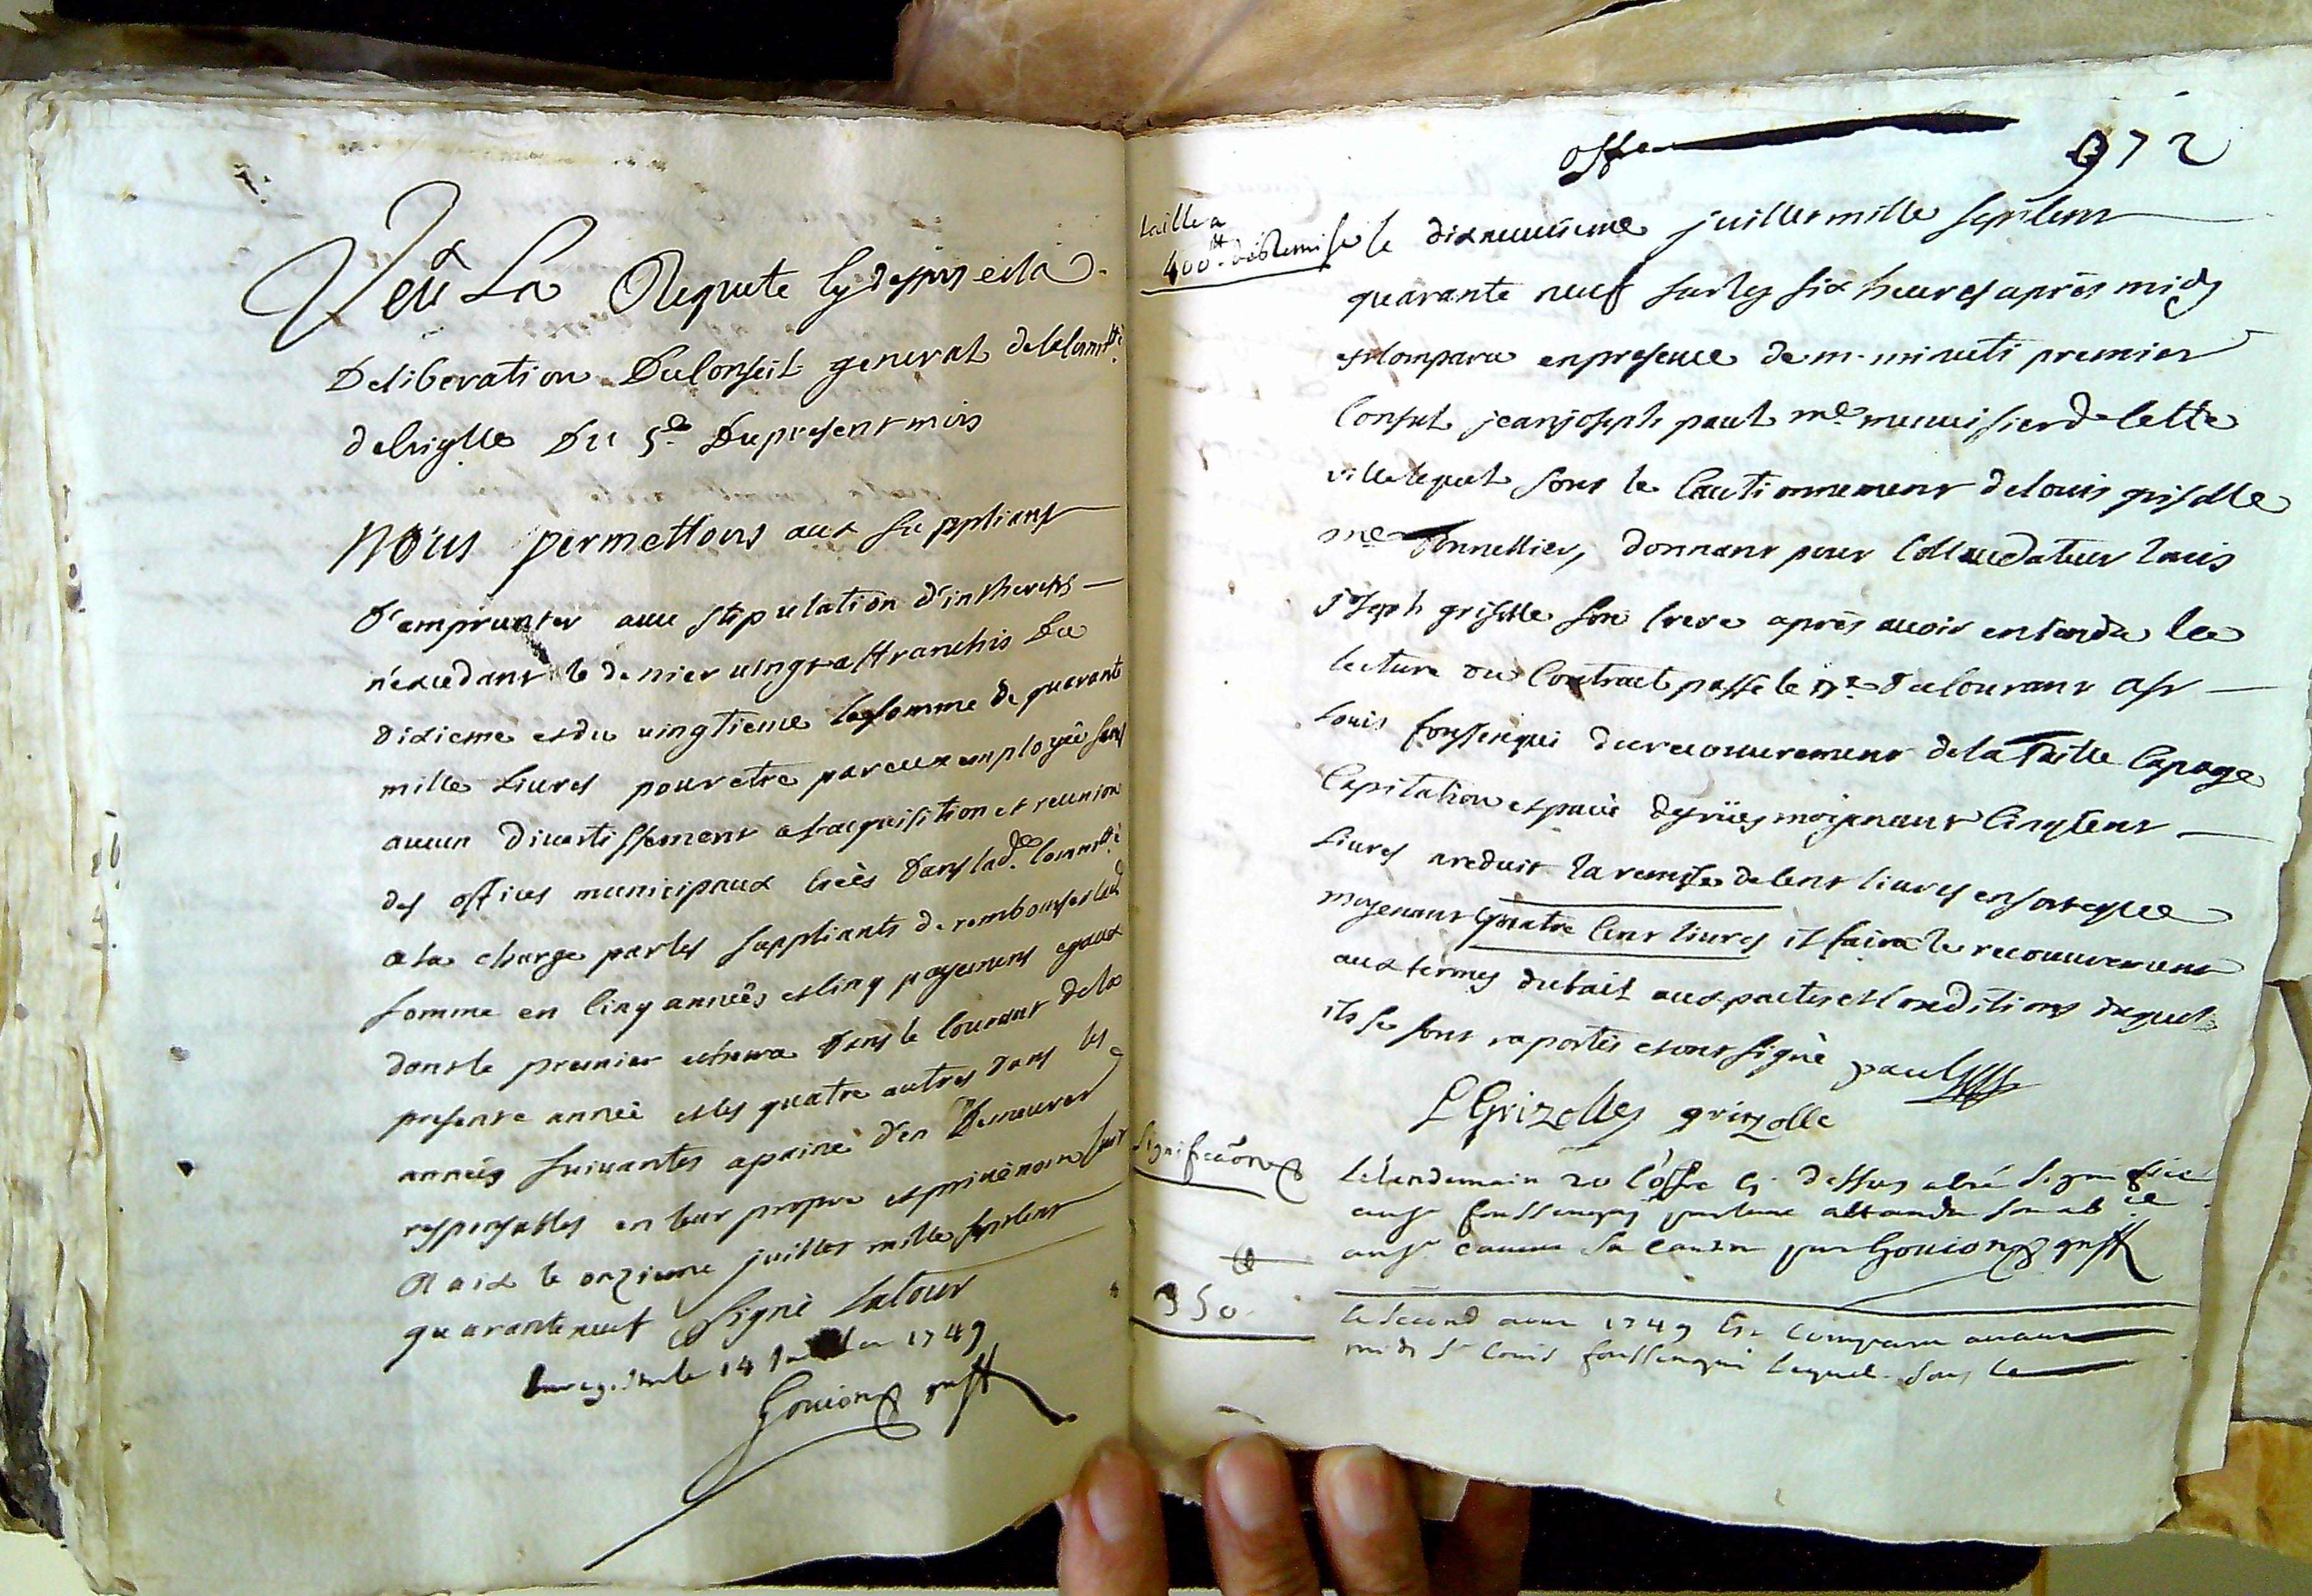 Veu La Requete cy dessus et la
Deliberation Du Conseil general de la Com.té
de brigolle Du 5.e Du present mois
Nous permettons aux suppliants
D'emprunter avec stipulation d'intherets
n'excedant le denier vingt affranchis Du
dixieme et du vingtieme la somme de quarante
mille Livres pour etre par eux employée sans
aucun divertissement a l'acquisition et reunion
des offices municipaux créés Dans lad.e Comm.té
a la charge par les suppliants de rembourser lad
somme en cinq années et cinq payemens egaux
dont le premier echerra Dans le Courant de la
presente année et les quatre autres dans les
années suivantes a paine d'en Demeurer
responsables en leur propre et privé nom fait
A aix le onzieme juillet mille sept cent
quarante neuf Signé Latour
Enregistré le 14 juillet 1749
Gouion greff
offre
972
taille a
400tt de remise
le dixneuvieme juillet mille sept cent
quarante neuf sur les six heures après midy
est comparu en presence de m. minuti premier
Consul jean joseph paul m.e menuisier de cette
ville lequel sous le Cautionnement de louis grisolle
m.e tonnellier, donnant pour Collaudateur louis
joseph grisolle son frere après avoir entendu la
lecture du Contract passé le 17.e du Courant a sr
Louis foussenqui du recouvrement de la taille Capage
Capitation et pavé des rües moyenant Cinq cent
Livres a reduit la remise de cent livres en sorte que
moyenant quatre Cent livres il faira le recouvrement
aux termes du bail aux pactes et Conditions duquel
ils se sont raportés et ont signé paul
L Grizolles grizolle
Significaon
Le lendemain 20 l'offre cy dessus a été Signifiée
au sr foussenquy parlant attandu son ab.ce
au sr comme sa caution par Gouion greff
350
Le second aout 1749 Est Comparu avant
midi Sr louis foussenqui lequel sous le